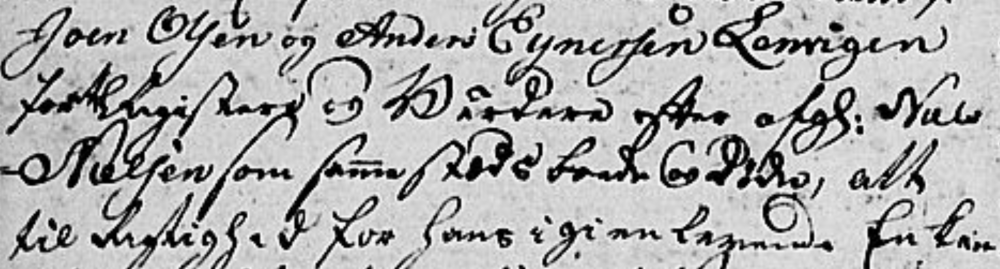 Joen Olsen og Anders Eÿnersen Lenvigen
for at Registere og Wurdere efter afgl: Niels
Nielsen som samme steds boede og døde, alt
til Rigtighed for hans igienlevende Enke